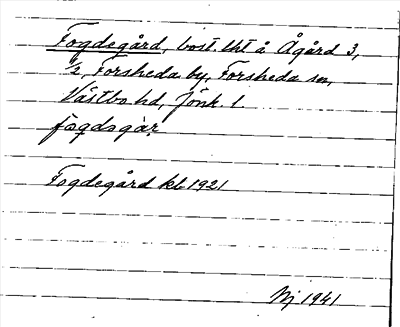 Fogdegård, bost. lht å Ågård 3,
1/2, Forsheda by, Forsheda sn,
Västbo hd, Jönk. l.
fogdsgår
Fogdegård kl 1921
Nj 1941